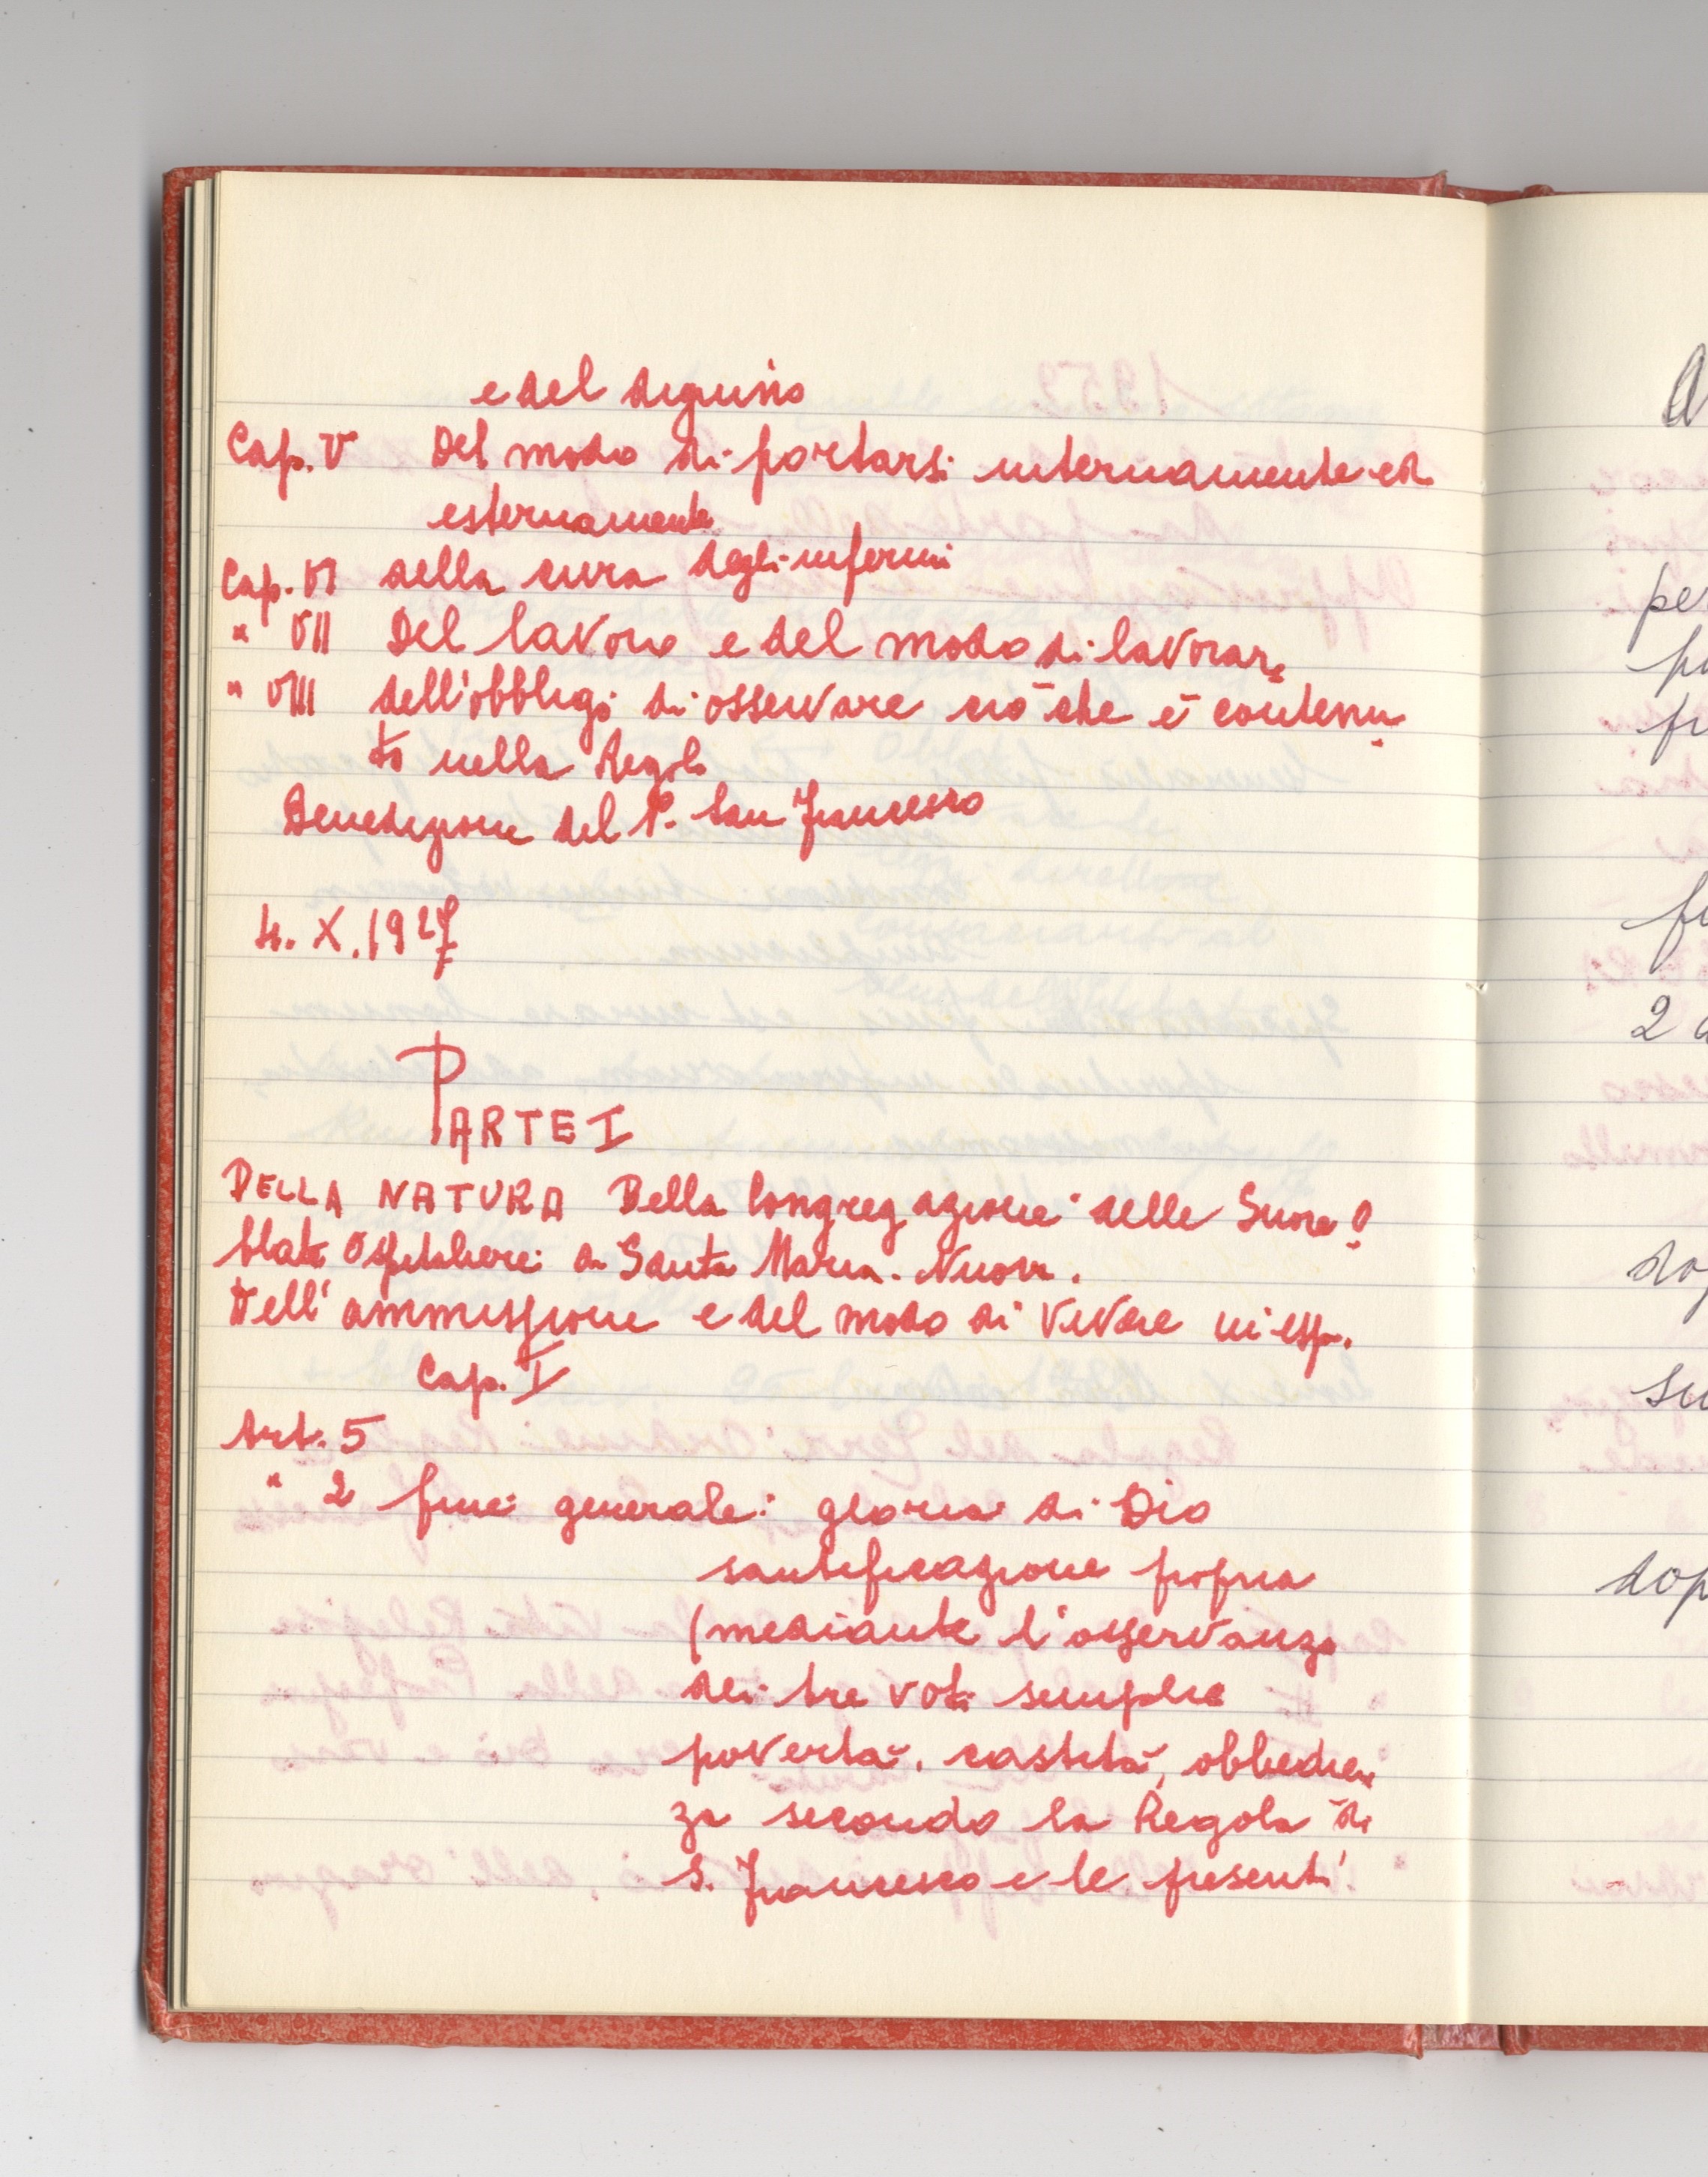 e del digiuno
Cap. V Del modo di portarsi internamente ed
esternamente
Cap. VI della cura degli infermi
" VII Del lavoro e del modo di lavorare
" VIII dell'obbligo di osservare ciò che è contenu-
to nella Regola
Benedizione del P. San Francesco
4. X. 1927
PARTE I
DELLA NATURA Della Congregazione delle Suore O-
blate Ospitaliere di Santa Maria Nuova.
Dell'ammissione e del modo di vivere in essa.
Cap. I
Art. 5
" 2 fine generale: gloria di Dio
santificazione propria
(mediante l'osservanza
dei tre voti semplici
povertà, castità, obbedien
za secondo la Regola di
S. Francesco e le presenti
per
2